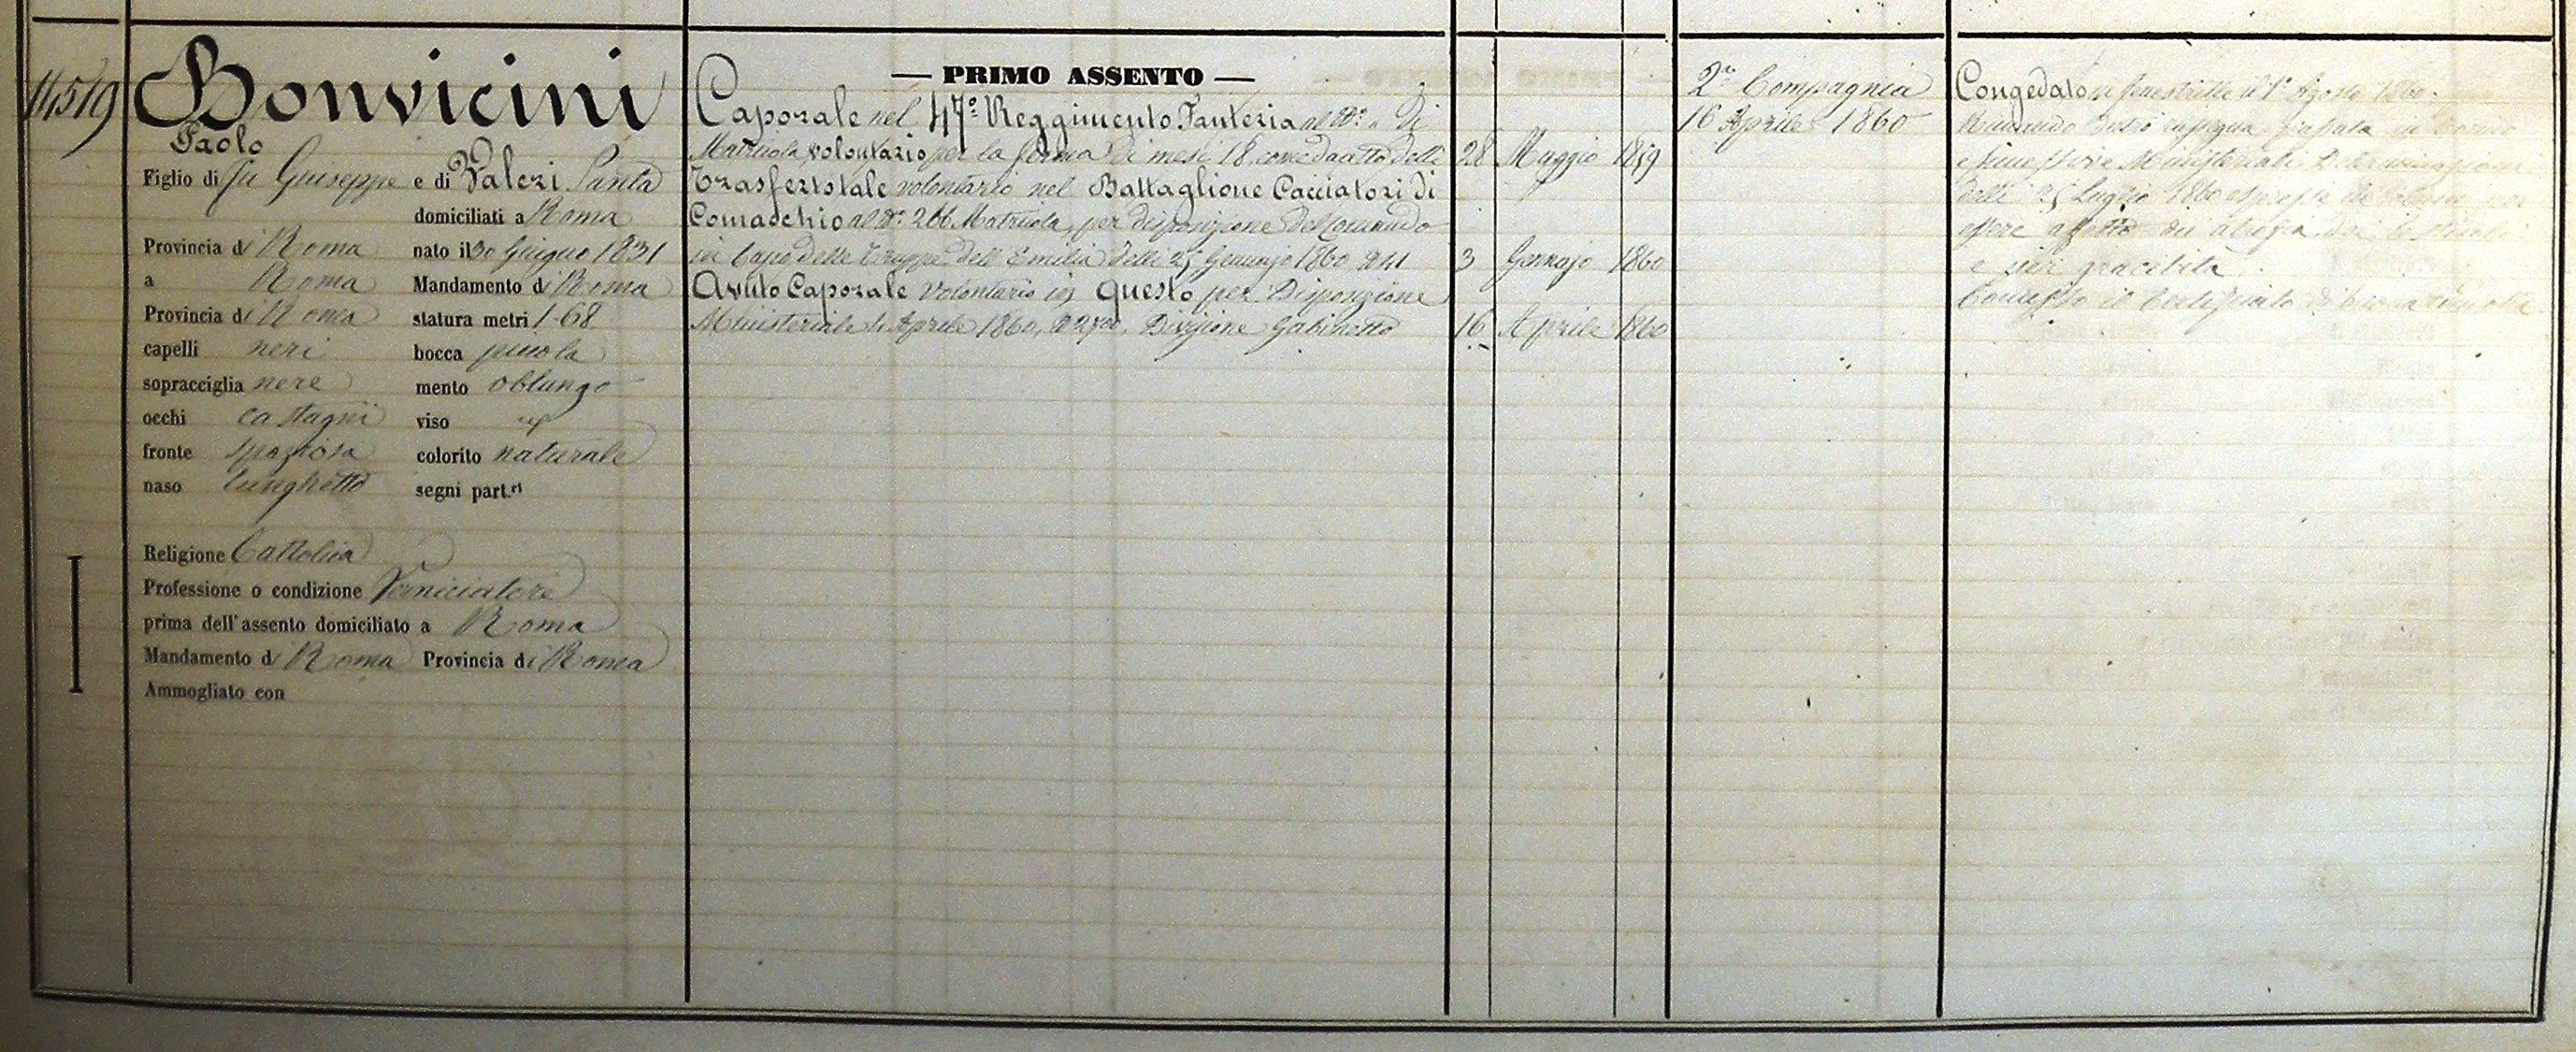 14519
Bonvicini
Paolo
Figlio di fu Giuseppe e di Valeri Santa
domiciliati a Roma
Provincia di Roma nato il 30 Giugno 1831
a Roma Mandamento di Roma
Provincia di Roma statura metri 1.68
capelli neri bocca piccola
sopracciglia nere mento oblungo
occhi castagni viso
fronte spaziosa colorito naturale
naso lunghetto segni part.ri
Religione Cattolica
Professione o condizione Verniciatore
prima dell'assento domiciliato a Roma
Mandamento di Roma Provincia di Roma
Ammogliato con
— PRIMO ASSENTO —
Caporale nel 47º Reggimento Fanteria al Nº " di
Matricola volontario per la ferma di mesi 18, come da atto delli 28 Maggio 1859
Trasferto tale volontario nel Battaglione Cacciatori di
Comacchio al Nº 266 Matricola, per disposizione del Comando
in Capo delle Truppe dell'Emilia delli 25 Gennajo 1860 3 Gennajo 1860
Avuto Caporale volontario in questo per Disposizione
Ministeriale Aprile 1860, Divisione Gabinetto 16 Aprile 1860
2ª Compagnia
16 Aprile 1860
Congedato in Fenestrelle il 1º Agosto 1860.
rassegna passata in
Ministeriale Determinazione
delli 25 Luglio 1860
essere affetto da
e per gracilità.
Concesso il Certificato di buona condotta